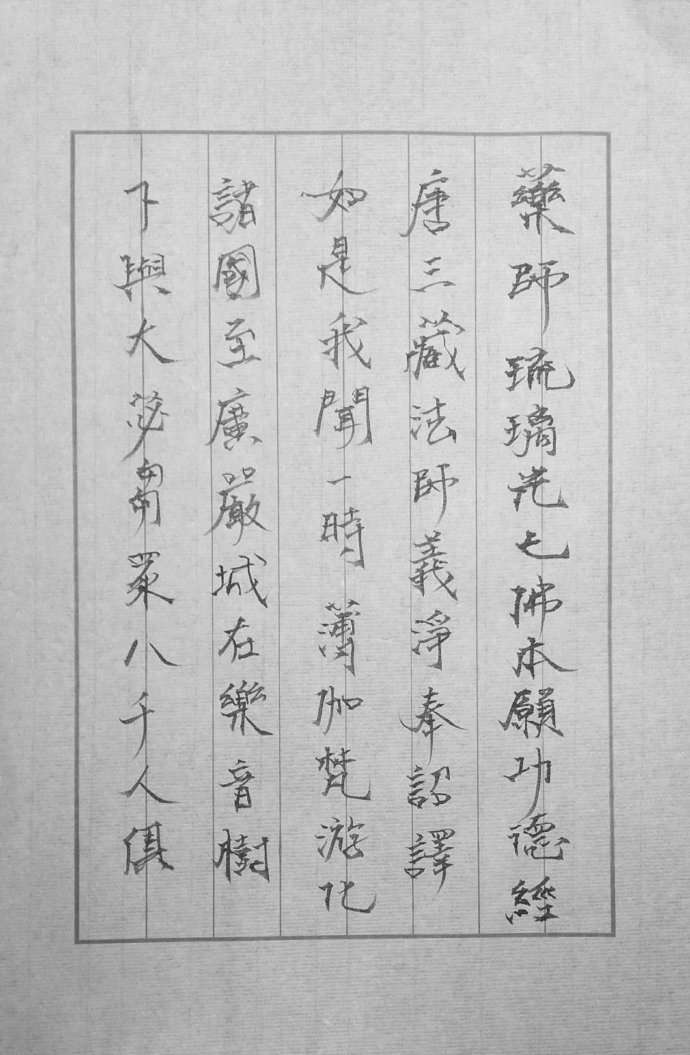 藥師琉璃光七佛本願功德經
唐三藏法師義淨奉詔譯
如是我聞一時薄伽梵遊化
諸國至廣嚴城在樂音樹
下與大苾芻眾八千人俱